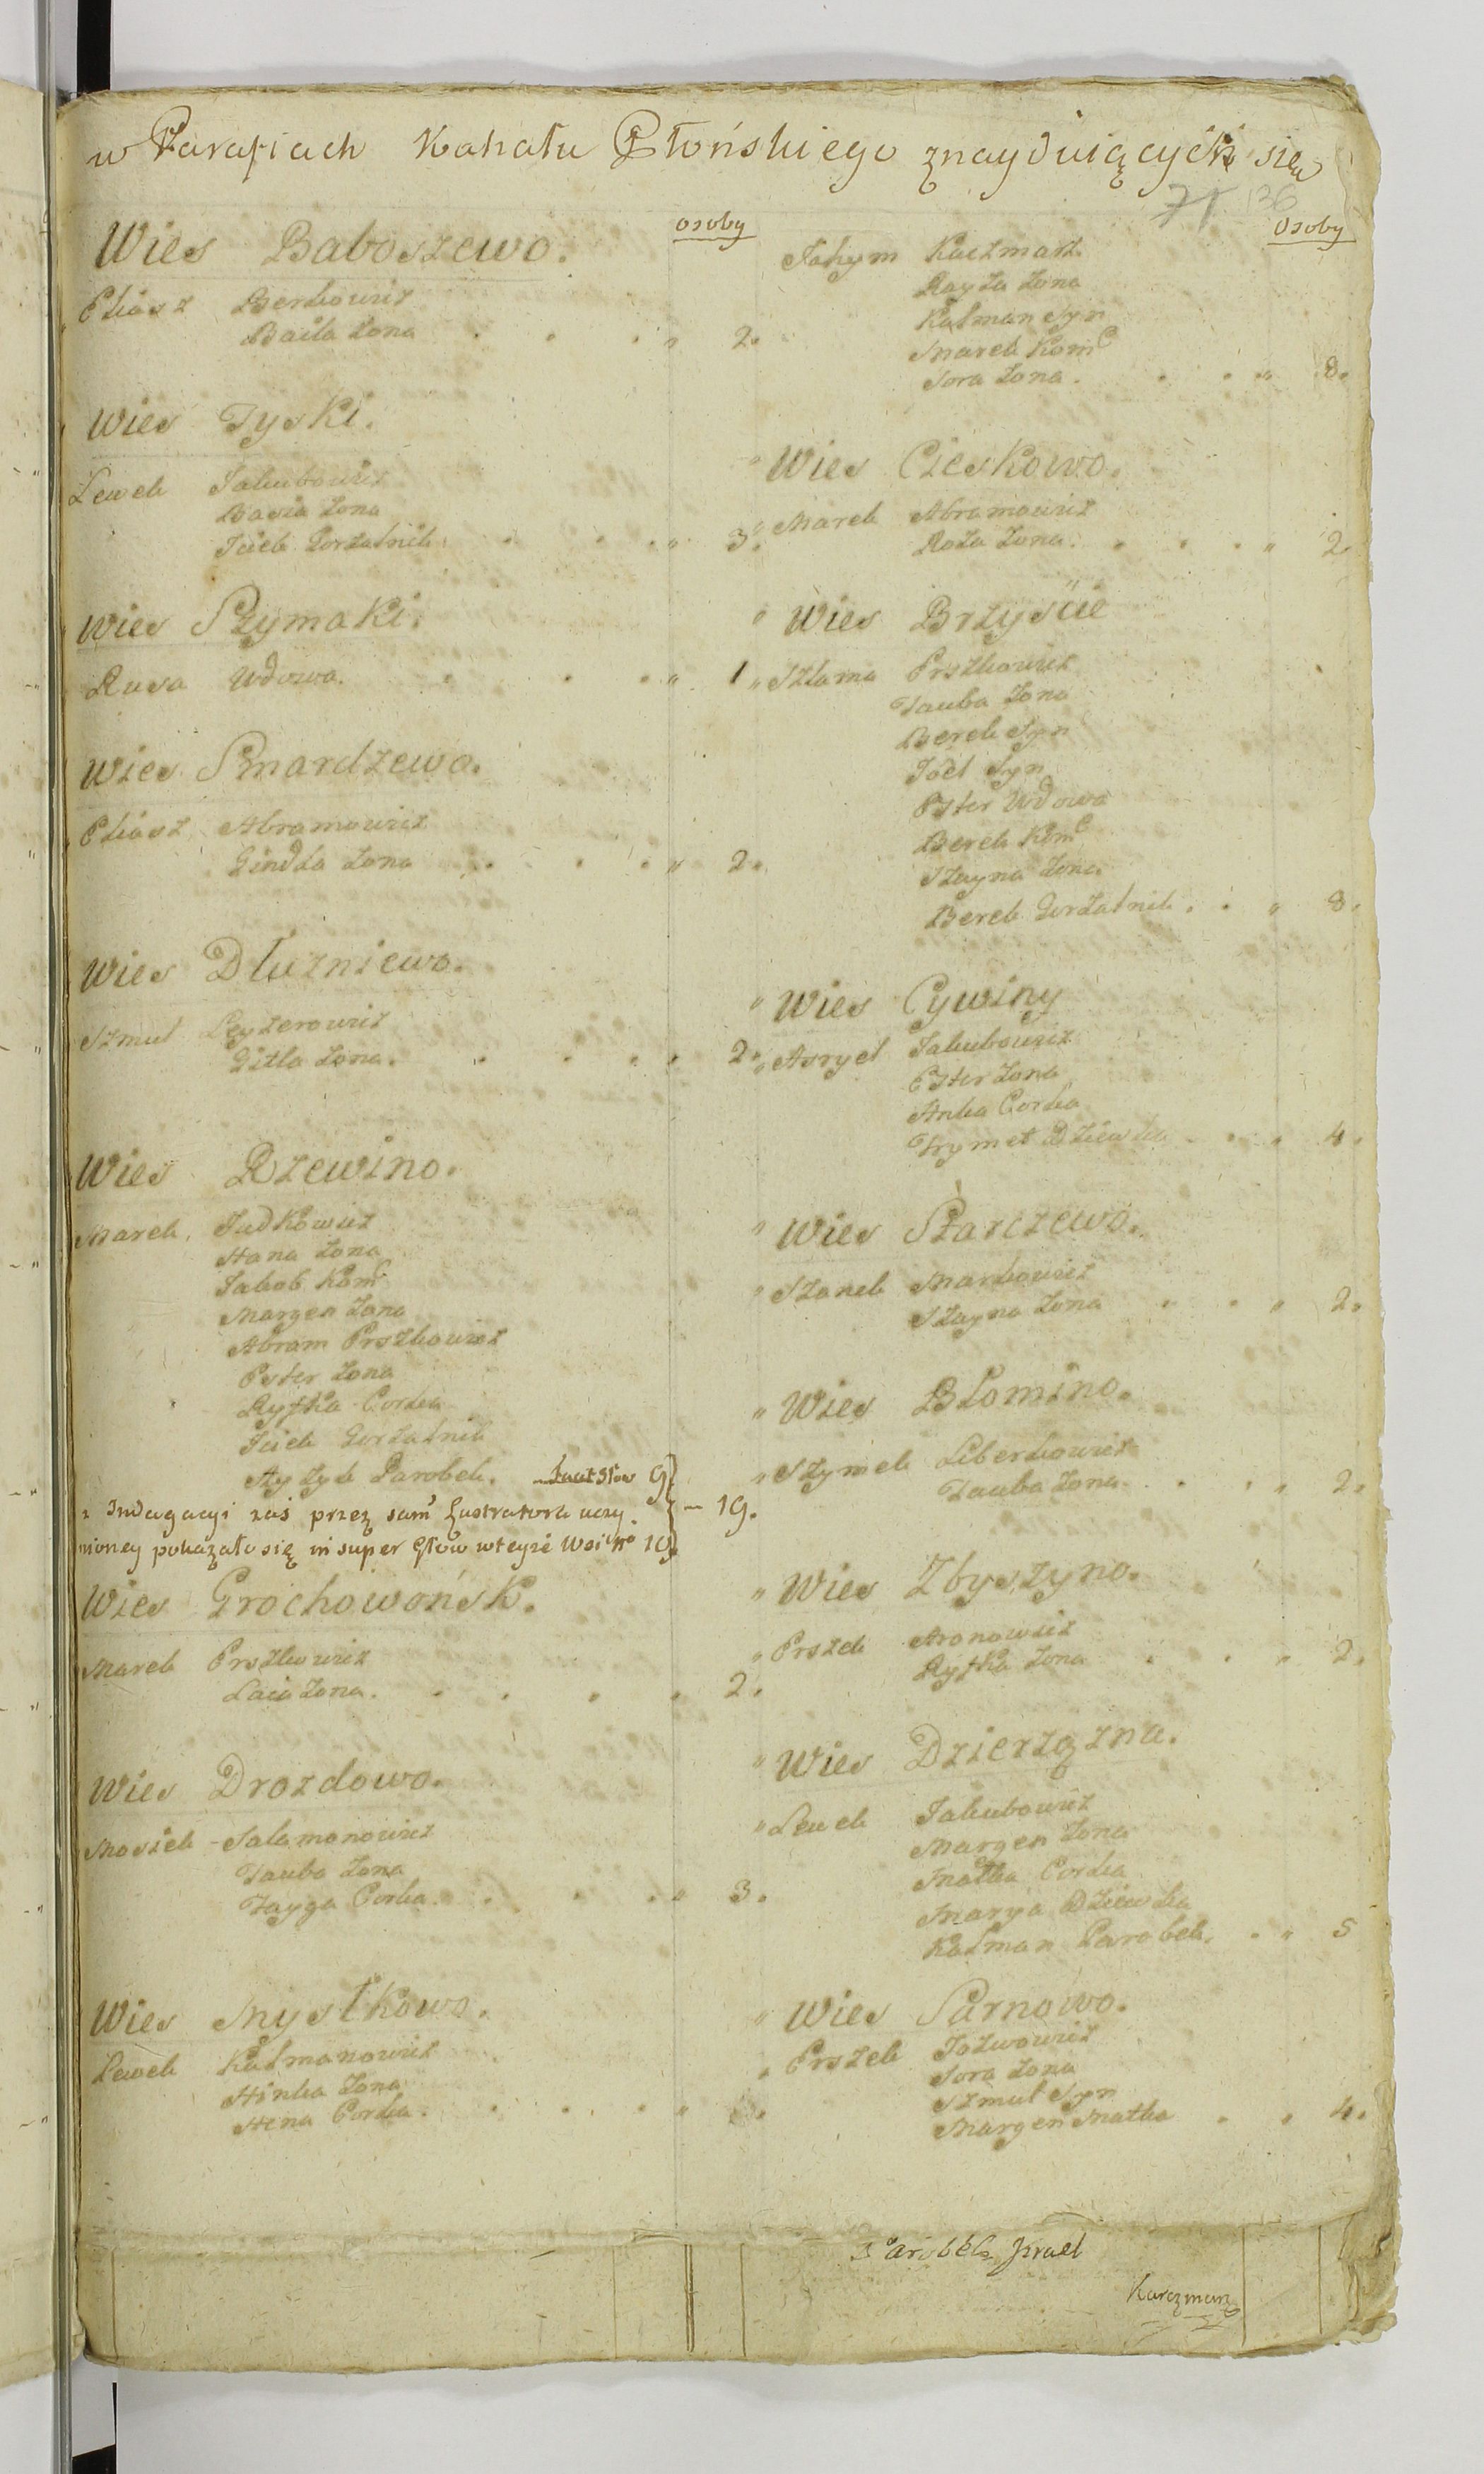 w Parafiach Kahału Płońskiego znayduiących się
71 136
osoby
Wies Baboszewo.
Eliasz Berkowicz
Baila Zona . . . " 2.
Wies Tyski.
Lewek Jakubowicz
Basia Zona
Jcek Gorzalnik . . . " 3.
Wies Szymaki.
Rusa Wdowa. . . . " 1
Wies Smardzewo.
Eliasz Abramowicz
Gindla Zona . . . " 2.
Wies Dłuzniewo.
Szmul Leyzerowicz
Gitla Zona. . . . " 2.
Wies Rzewino.
Marek Judkowicz
Hana Zona
Jakob Komc
Margen Zona
Abram Erszkowicz
Ester Zona
Ryfka Corka
Jciek Gorzalnik
Ayzyk Parobek. głów 9
z Indagacyi zaś przez sam Lustratora uczy-
nioney pokazało się in super Głów wteyże Wsi 10 } - 19.
Wies Grochowońsk.
Marek Erszkowicz
Laia Zona. . . . . 2.
Wies Drozdowo.
Mosiek Salamonowicz
Tauba Zona
Fayga Corka. . . . " 3.
Wies Mystkowo.
Lewek Kalmanowicz
Hinka Zona
Hena Corka. . . . "
osoby
Jakym Kaczmarz.
Rayza Zona
Kalman Syn
Marek Komc
Sora Zona. . . " 8.
" Wies Cieskowo.
" Marek Abramowicz
Roza Zona. . . . " 2.
" Wies Brzyście
" Szlama Erszkowicz
Tauba Zona
Berek Syn
Joel Syn
Ester Wdowa
Berek Komc
Szayna Zona.
Berek Gorzalnik. . " 8.
" Wies Cywiny
" Asryel Jakubowicz
Ester Zona
Anka Corka
Frymet Dziewka . . " 4.
" Wies Starczewo.
" Szanek Markowicz
Szayna Zona . . " 2.
" Wies Błomino.
" Szymek Liberkowicz
Tauba Zona . . " 2.
" Wies Zbyszyno.
" Erszek Aronowicz
Ryfka Zona . . " 2.
" Wies Dzierzązna.
" Lewek Jakubowicz
Margen Zona
Małka Corka
Marya Dziewka
Kalman Parobek. . " 5
" Wies Sarnowo.
" Erszek Jozwowicz
Sora Zona
Szmul Syn
Margen Matka . . 4.
Parobek Jzrael
Karczmarz